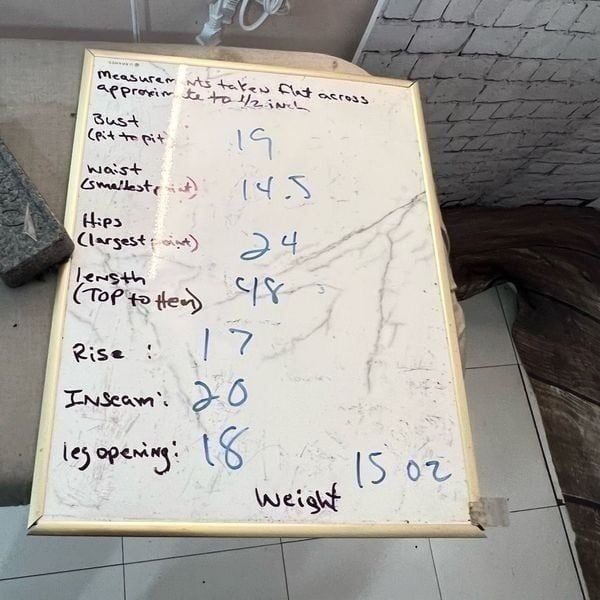 Measurements taken flat across
approximate to 1/2 inch
Bust
(pit to pit) 19
waist
(smallest point) 14.5
Hips
(largest point) 24
length
(TOP to Hem) 48
Rise : 17
Inseam: 20
leg opening: 18
15 oz
Weight